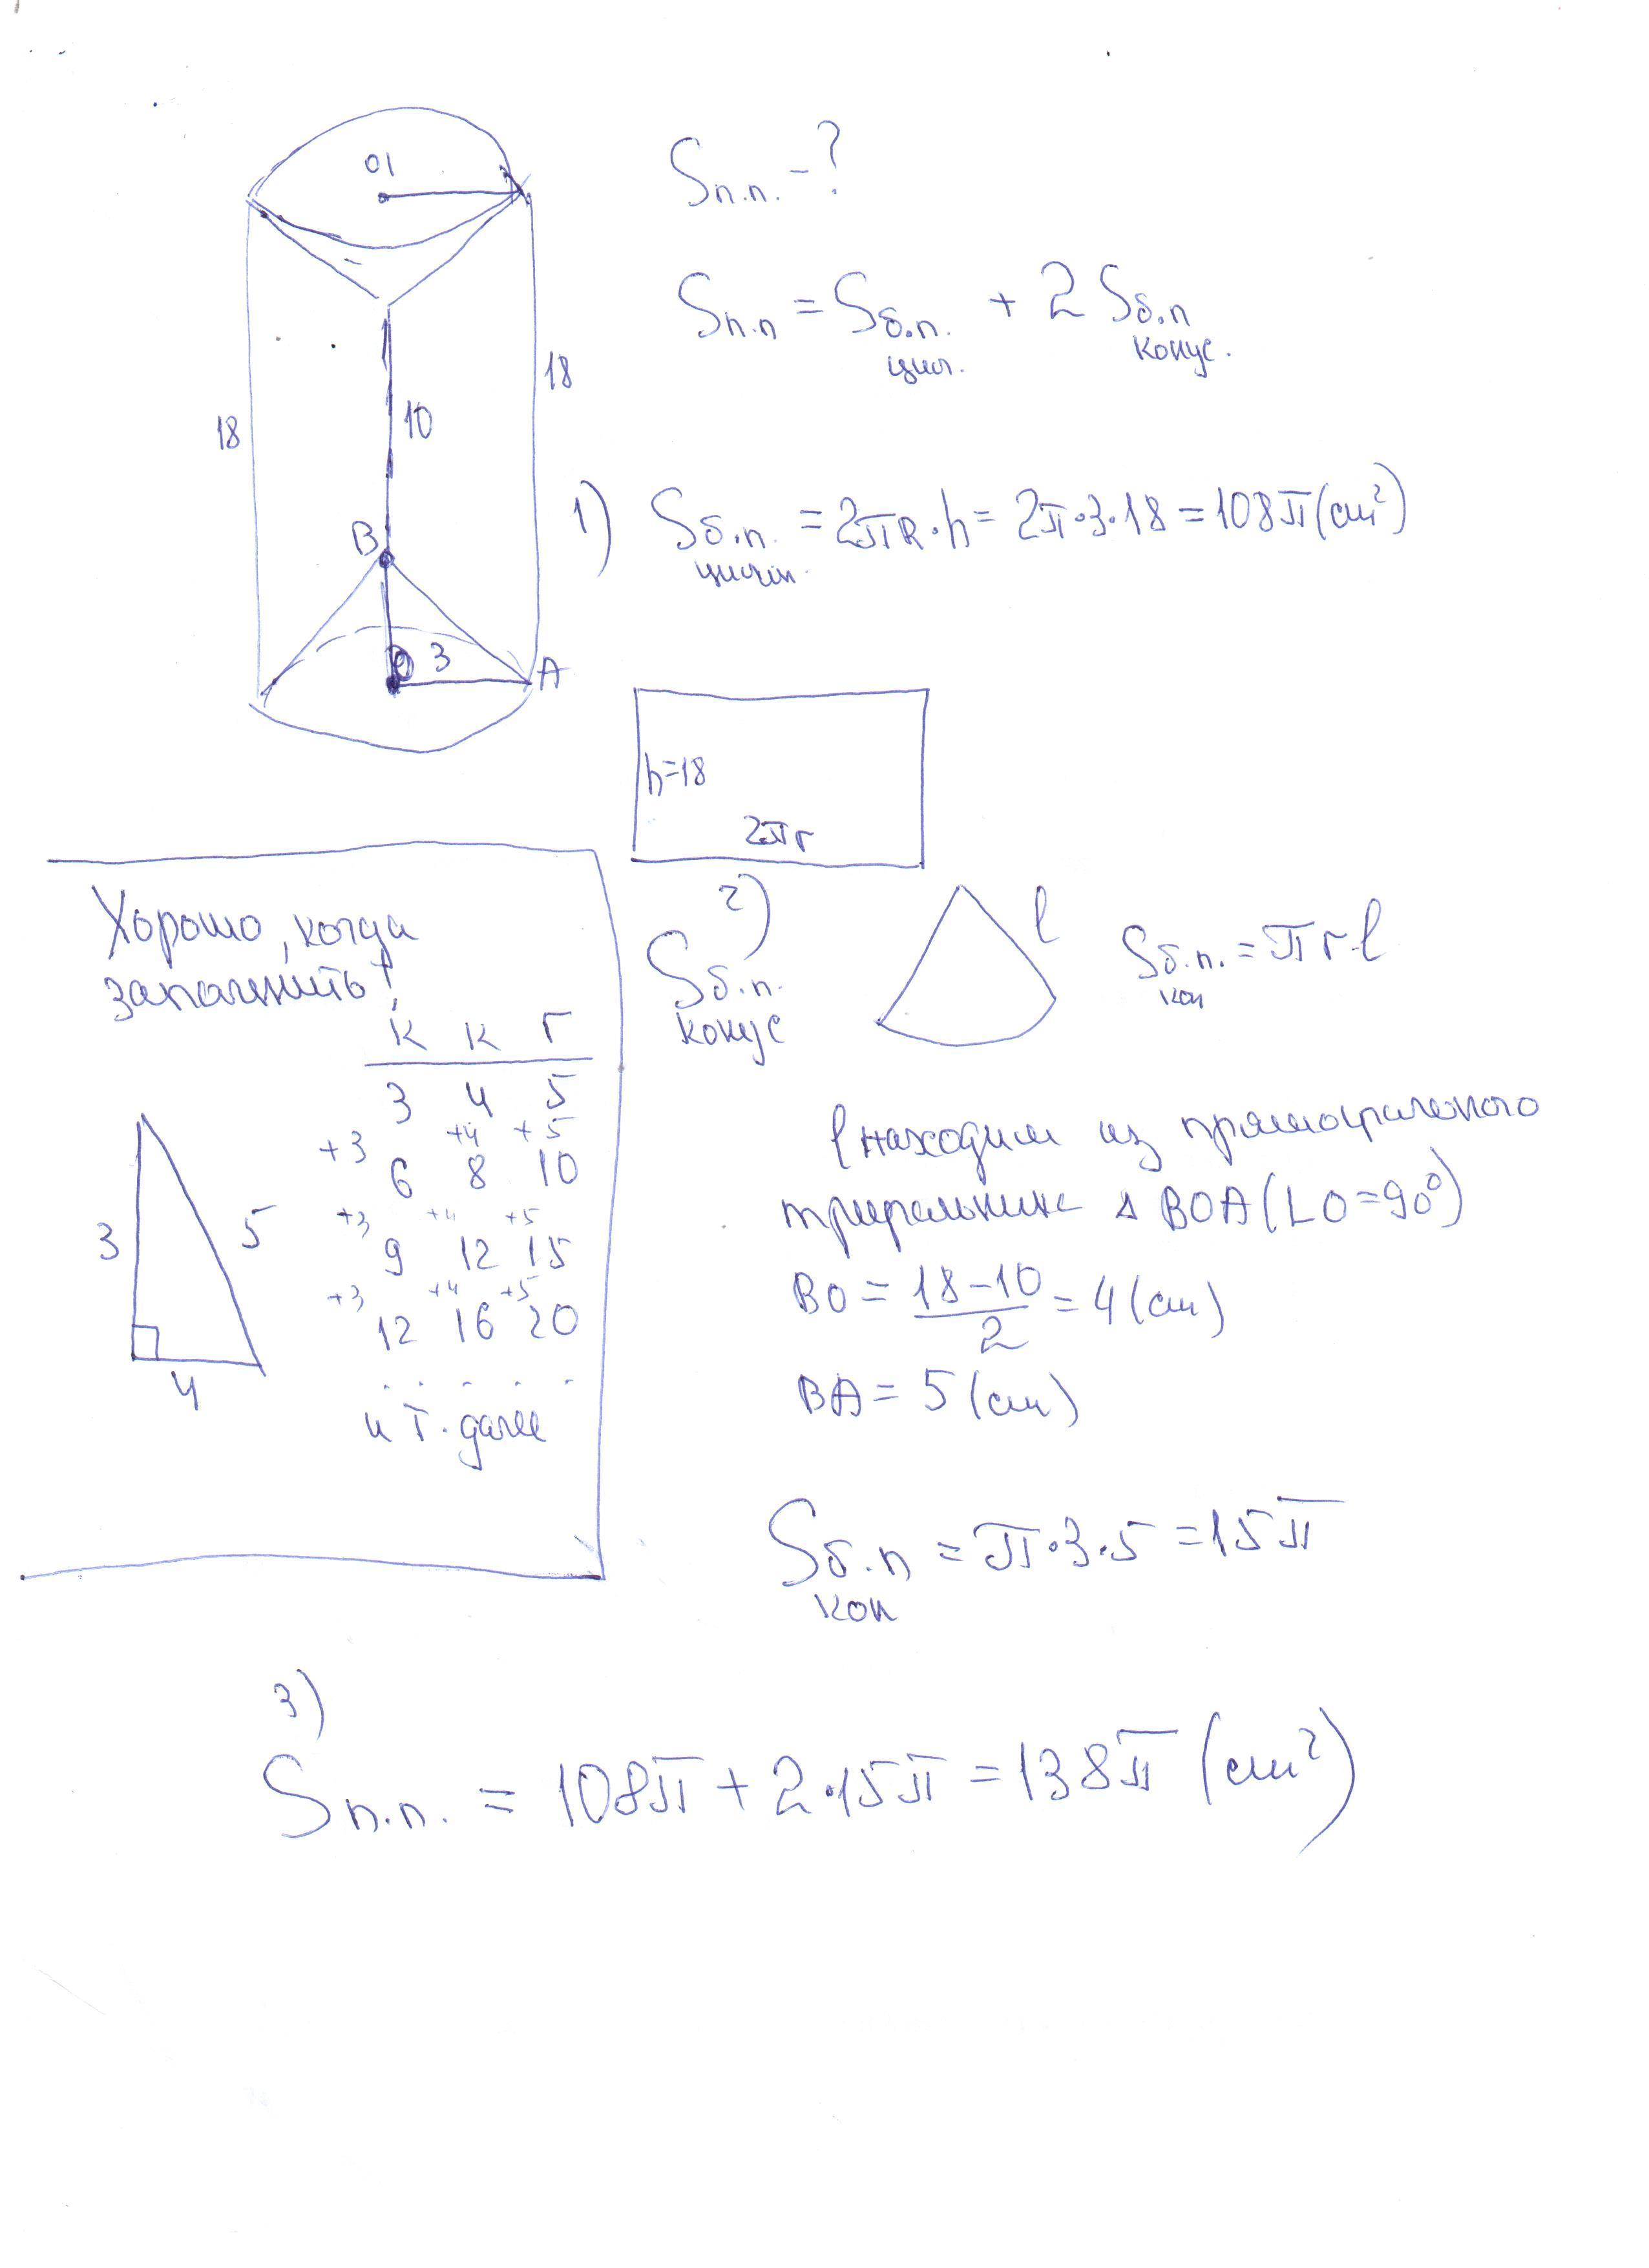 O1
18
18
10
B
O
3
A
Sп.п. - ?
Sп.п = Sб.п. цил. + 2 Sб.п конус.
1) Sб.п. цилин. = 2πR·h = 2π·3·18 = 108π (см²)
h=18
2πr
Хорошо, когда
запомнить!
К К Г
3 4 5
+3 +4 +5
6 8 10
+3 +4 +5
9 12 15
+3 +4 +5
12 16 20
. . . . .
и т. далее
3
5
4
2)
Sб.п. конус
l
Sб.п. кон = πr·l
l находим из прямоугольного
треугольника Δ BOA (∟O=90°)
BO = (18-10)/2 = 4 (см)
BA = 5 (см)
Sб.п кон = π·3·5 = 15π
3)
Sп.п. = 108π + 2·15π = 138π (см²)